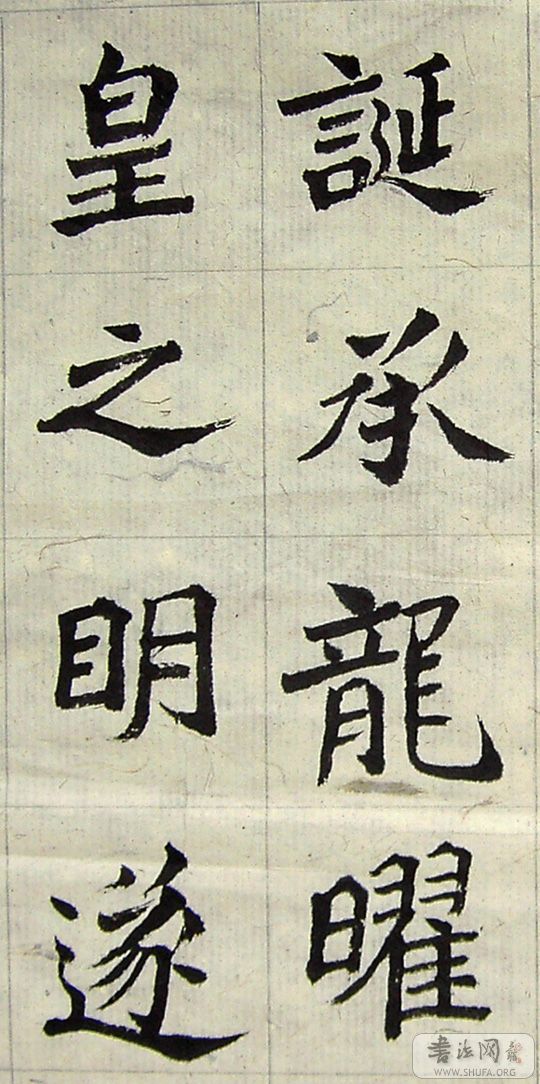 誕承龍曜
皇之明遂
书法网
WWW.SHUFA.ORG